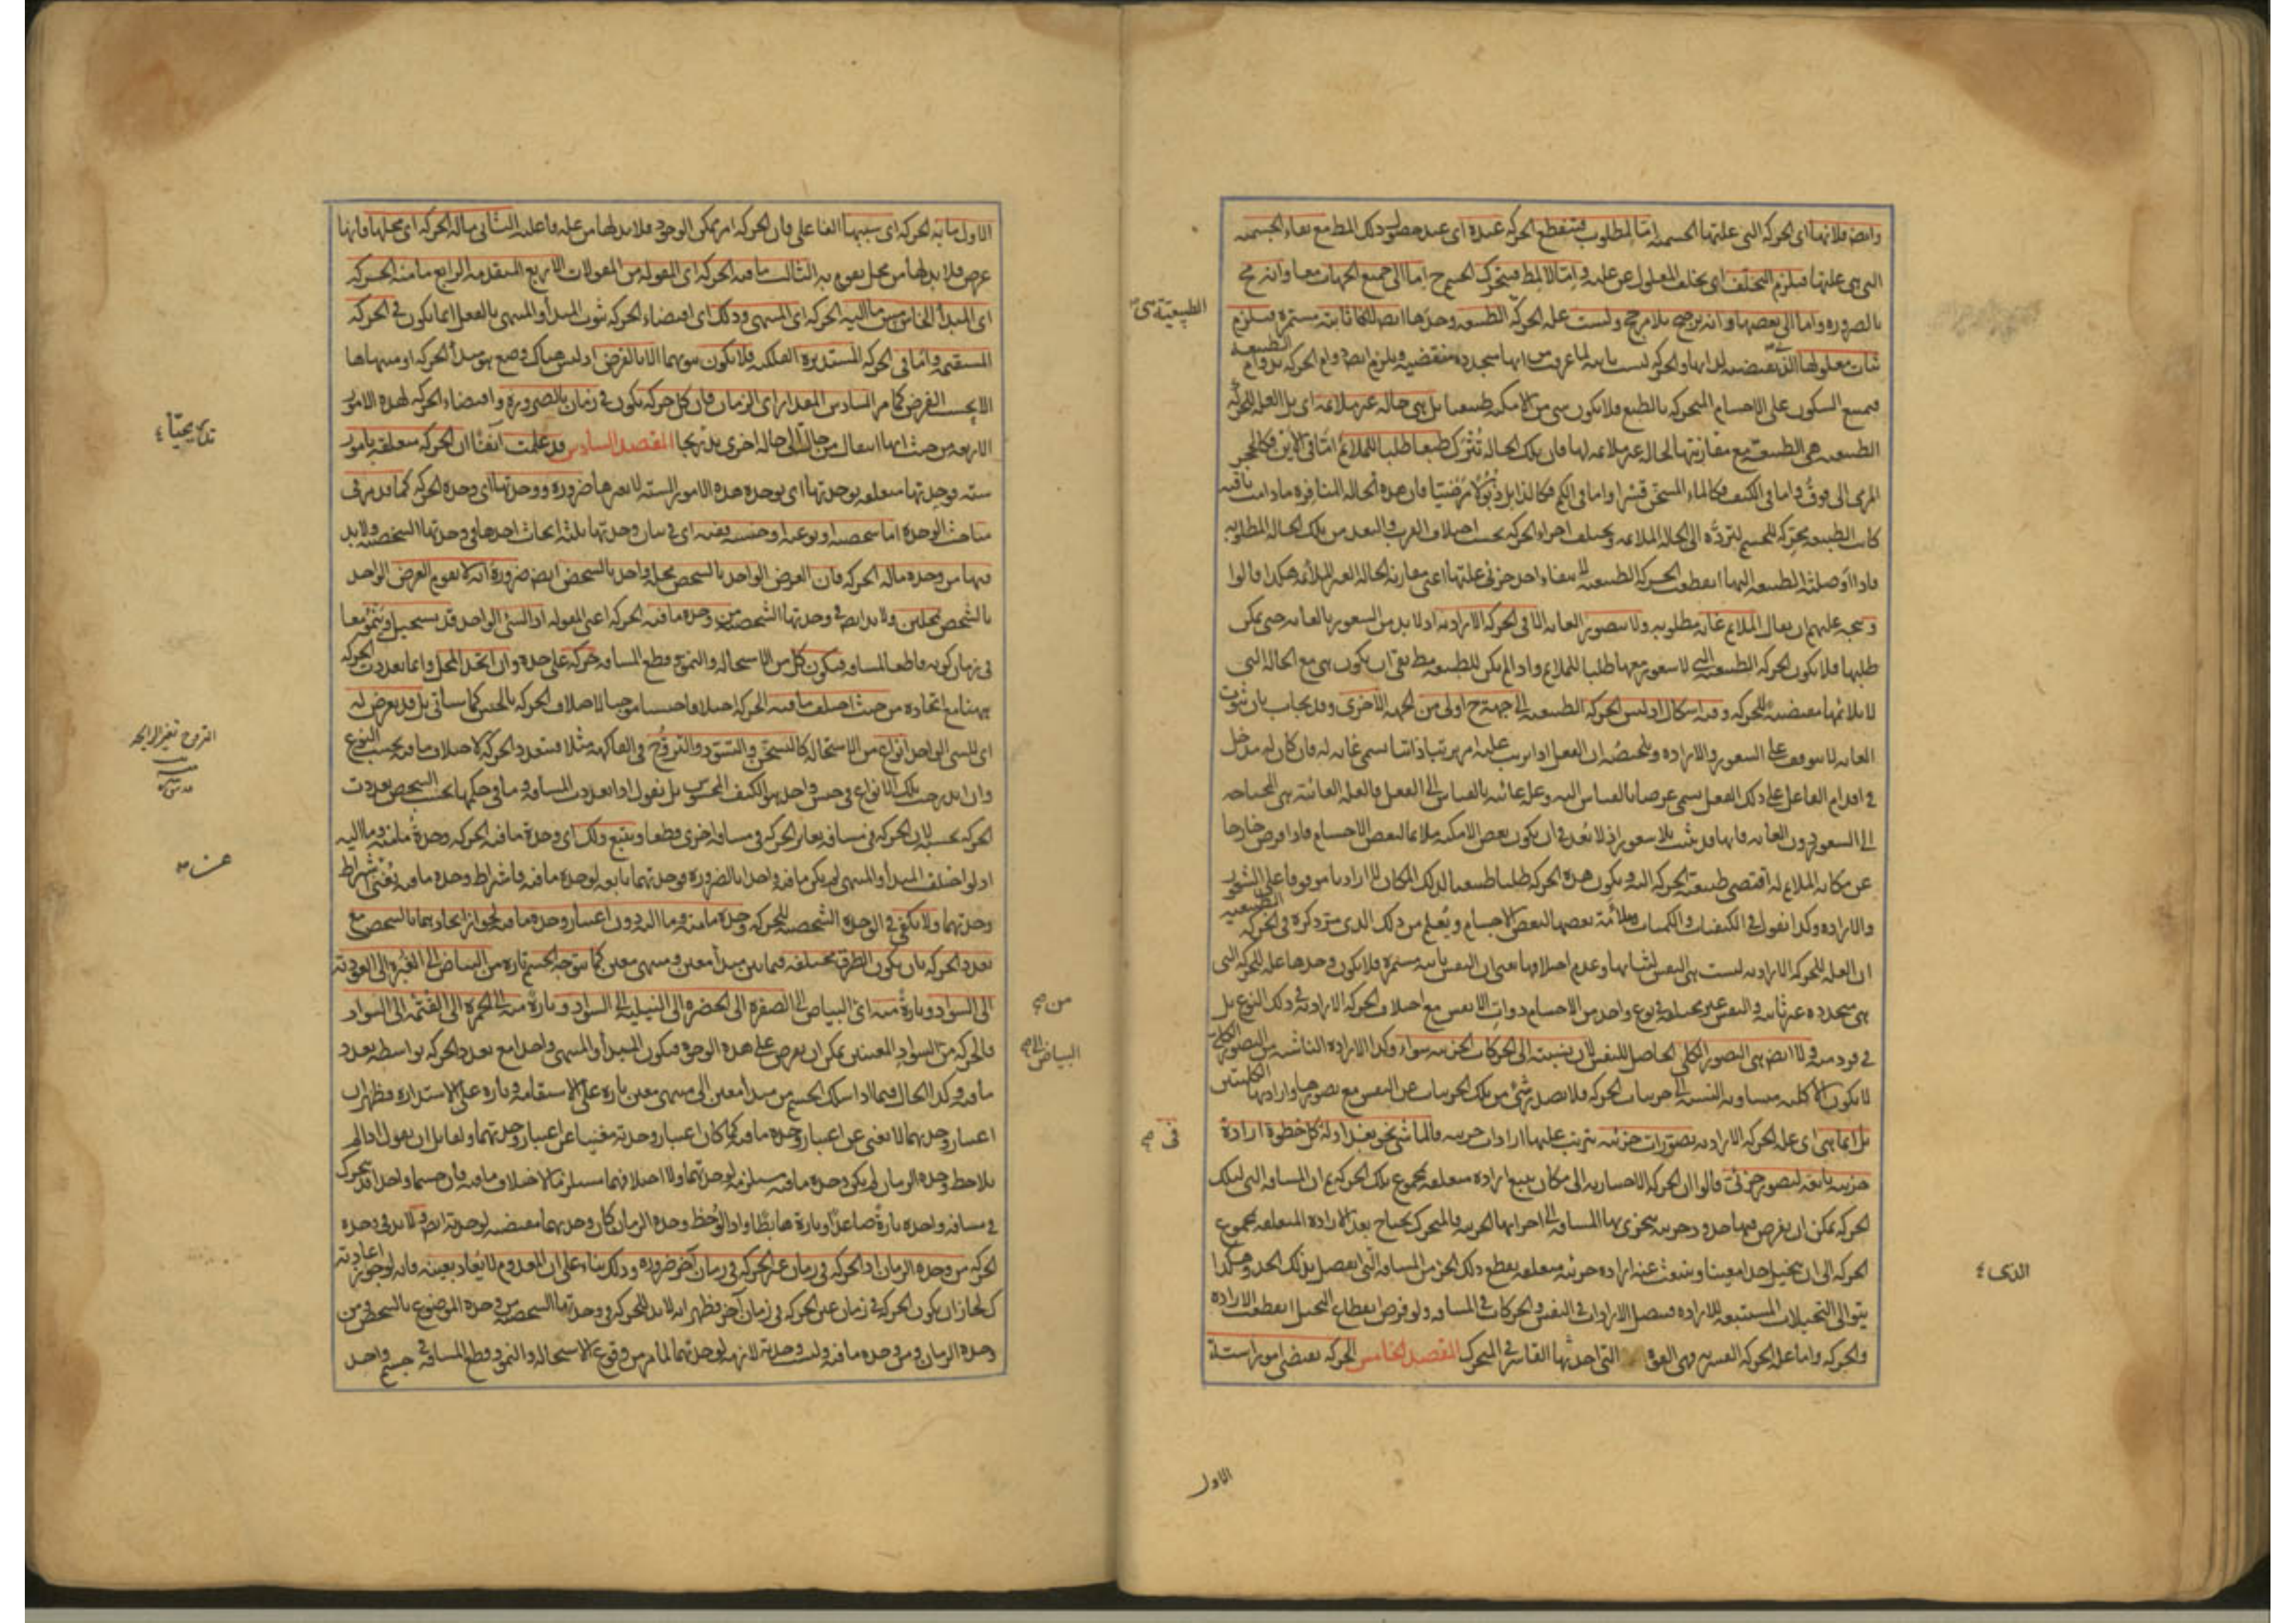 وايض فلانها اى الحركة التى علتها الجسمية اما لمطلوب فتنقطع الحركة عنده اى عند حصول ذلك المط مع بقاء الجسمية
التى هى علتها فيلزم التخلف اى تخلف المعلول عن علته واما لا لمط فيتحرك الجسم ح اما الى جميع الجهات معا وانه مح
بالضرورة واما الى بعضها وانه ترجيح بلا مرجح وليست علة الحركة الطبيعة وحدها ايضا لكونها ثابتة مستمرة فيلزم
ثبات معلولها الذى تقتضيه لذاتها والحركة ليست ثابتة لما عرفت من انها متجددة منقضية ويلزم ايضا دوام الحركة بدوام الطبيعة
فيمتنع السكون على الاجسام المتحركة بالطبع فلا يكون شئ من الامكنة طبيعيا بل هى حالة غير ملائمة اى بل العلة للحركة
الطبيعية هى الطبيعة مع مقارنتها لحالة غير ملائمة لها فان تلك الحالة تترك طبعا طلبا للملائم اما فى الاين فكالحجر
المرمى الى فوق واما فى الكيف فكالماء المسخن قسرا واما فى الكم فكالذابل ذبولا مرضيا فان هذه الحالة المنافرة ما دامت باقية
كانت الطبيعة محركة للجسم لترده الى الحالة الملائمة ويختلف اجزاء الحركة بحسب اختلاف القرب والبعد من تلك الحالة المطلوبة
فاذا اوصلته الطبيعة اليها انقطعت الحركة الطبيعية لانتفاء احد جزئى علتها اعنى مقارنة الحالة الغير الملائمة هكذا قالوا
ويتجه عليهم ان يقال الملائم غاية مطلوبة ولا يتصور الغاية الا فى الحركة الارادية اذ لا بد من الشعور بالغاية حتى يمكن
طلبها فلا يكون الحركة الطبيعية التى لا شعور معها طلبا للملائم واذا لم يكن للطبيعة مط بقى ان يكون هى مع الحالة التى
لا تلائمها مقتضية للحركة وفيه اشكال اذ ليس الحركة الطبيعية الى جهة ح اولى من الجهة الاخرى وقد يجاب بان ثبوت
الغاية لا يتوقف على الشعور والارادة وتلخيصه ان الفعل اذا ترتب عليه امر ترتبا ذاتيا يسمى غاية له فان كان له مدخل
فى اقدام الفاعل على ذلك الفعل يسمى غرضا بالقياس اليه وعلة غائية بالقياس الى الفعل فالعلة الغائية هى المحتاجة
الى الشعور دون الغاية فانها قد تثبت بلا شعور اذ لا بعد فى ان يكون بعض الامكنة ملائما لبعض الاجسام فاذا فرض خارجا
عن مكانه الملائم له اقتضى طبيعته الحركة اليه ويكون هذه الحركة طلبا طبيعيا لذلك المكان لا اراديا موقوفا على الشعور
والارادة وكذا نقول فى الكيفيات والكميات وملائمة بعضها لبعض الاجسام ويعلم من ذلك الذى مر ذكره فى الحركة الطبيعية
ان العلة للحركة الارادية ليست هى النفس لثباتها وعدم اختلافها بمعنى ان النفس ثابتة مستمرة فلا يكون وحدها علة للحركة التى
هى متجددة غير ثابتة والنفس غير مختلفة فى نوع واحد من الاجسام ذوات الانفس مع اختلاف الحركة الارادية فى ذلك النوع بل
فى فرد منه ولا ايضا هى التصور الكلى الحاصل للنفس لان نسبته الى الحركات الجزئية سواء وكذا الارادة الناشئة من التصور الكلى
لا يكون الا كلية متساوية النسبة الى جزئيات الحركة فلا يصدر شئ من تلك الجزئيات عن النفس مع تصورها وارادتها الكليتين
بل انما هى اى علة الحركة الارادية تصورات جزئية يترتب عليها ارادات جزئية فالماشى نحو بغداد له كل خطوة ارادة
جزئية تابعة لتصور جزئى قالوا ان الحركة الاختيارية الى مكان يتبع ارادة متعلقة بمجموع تلك الحركة ثم ان المسافة التى لتلك
الحركة يمكن ان يفرض فيها حدود جزئية يتجزى بها المسافة الى اجزائها الجزئية فالمتحرك يحتاج بعد الارادة المتعلقة بمجموع
الحركة الى ان يتخيل حدا معينا وينبعث عنه ارادة جزئية متعلقة بقطع ذلك الجزء من المسافة التى ينفصل بذلك الحد وهكذا
يتوالى التخيلات المستتبعة للارادة فيتصل الارادات فى النفس والحركات فى المسافة ولو فرض انقطاع التخيل انقطعت الارادة
والحركة واما علة الحركة القسرية فهى القوة التى احدثها القاسر فى المتحرك المقصد الخامس الحركة تقتضى امورا ستة
الطبيعية
فى صح
الذى
الاول
الاول ما به الحركة اى سببها الفاعلى فان الحركة امر ممكن الوجود فلا بد لها من علة فاعلية الثانى ما له الحركة اى محلها فانها
عرض فلا بد لها من محل يقوم به الثالث ما فيه الحركة اى المقولة من المقولات الاربع المتقدمة الرابع ما منه الحركة
اى المبدأ الخامس ما اليه الحركة اى المنتهى وذلك اى اقتضاء الحركة ثبوت المبدأ والمنتهى بالفعل انما يكون فى الحركة
المستقيمة واما فى الحركة المستديرة الفلكية فلا يكون ثبوتهما الا بالفرض اذ ليس هناك وضع هو مبدأ الحركة او منتهاها
الا بحسب الفرض كما مر السادس المقدار اى الزمان فان كل حركة يكون فى زمان بالضرورة واقتضاء الحركة لهذه الامور
الاربعة من حيث انها انتقال من حالة الى حالة اخرى تدريجا المقصد السادس قد علمت آنفا ان الحركة متعلقة بامور
ستة فوحدتها متعلقة بوحدتها اى بوحدة هذه الامور الستة لا بغيرها ضرورة ووحدتها اى وحدة الحركة كما قد مر فى
مباحث الوحدة اما شخصية او نوعية او جنسية ففيه اى فى بيان وحدتها ثلثة ابحاث احدها فى وحدتها الشخصية ولا بد
فيها من وحدة ما له الحركة فان العرض الواحد بالشخص محله واحد بالشخص ايضا ضرورة انه لا يقوم العرض الواحد
بالشخص بمحلين ولا بد ايضا فى وحدتها الشخصية من وحدة ما فيه الحركة اعنى المقولة اذ الشئ الواحد قد يستحيل وينمو معا
فى زمان كونه قاطعا لمسافة فيكون كل من الاستحالة والنمو وقطع المسافة حركة على حدة وان اتحد المحل وانما تعددت الحركة
ههنا مع اتحاده من حيث اختلف ما فيه الحركة اختلافا جنسيا موجبا لاختلاف الحركة بالجنس كما سيأتى بل قد يعرض له
اى للشئ الواحد انواع من الاستحالة كالتسخن والتسود والتروح فى الفاكهة مثلا فتعدد الحركة لاختلاف ما فيه بحسب النوع
وان اندرجت تلك الانواع فى جنس واحد هو الكيف المحسوس بل نقول اذا تعددت المسافة وما فى حكمها بحسب الشخص تعددت
الحركة بحسبه لان الحركة فى مسافة يغاير الحركة فى مسافة اخرى قطعا ويتبع ذلك اى وحدة ما فيه الحركة وحدة ما منه وما اليه
اذ لو اختلف المبدأ والمنتهى لم يكن ما فيه واحدا بالضرورة فوحدتهما تابعة لوحدة ما فيه فاشتراط وحدة ما فيه يغنى عن اشتراط
وحدتهما ولا يكفى فى الوحدة الشخصية للحركة وحدة ما منه وما اليه دون اعتبار وحدة ما فيه لجواز اتحادهما بالشخص مع
تعدد الحركة بان يكون الطرق مختلفة فيما بين مبدأ معين ومنتهى معين كما يتوجه الجسم تارة من البياض الى الغبرة الى العودية
الى السواد وتارة منه اى البياض الى الصفرة الى الخضرة الى النيلية الى السواد وتارة منه الى الحمرة الى القتمة الى السواد
فالحركة من السواد المعينين يمكن ان يعرض على هذه الوجوه فيكون المبدأ والمنتهى واحدا مع تعدد الحركة بواسطة تعدد
ما فيه وكذا الحال فيما اذا سلك الجسم من مبدأ معين الى منتهى معين تارة على الاستقامة وتارة على الاستدارة فظهر ان
اعتبار وحدتهما لا يغنى عن اعتبار وحدة ما فيه كما كان اعتبار وحدته مغنيا عن اعتبار وحدتهما ولقائل ان يقول اذا لم
يلاحظ وحدة الزمان لم يكن وحدة ما فيه مستلزمة لوحدتهما ولا اختلافهما مستلزما لاختلاف ما فيه فان جسما واحدا قد يتحرك
فى مسافة واحدة تارة صاعدا وتارة هابطا واذا لوحظ وحدة الزمان كان وحدتهما مقتضية لوحدته ايضا ولا بد فى وحدة
الحركة من وحدة الزمان اذ الحركة فى زمان غير الحركة فى زمان آخر ضرورة وذلك بناء على ان المعدوم لا يعاد بعينه فانه لو جوز اعادته
كذلك لجاز ان يكون الحركة فى زمان عين الحركة فى زمان آخر فظهر انه لا بد للحركة فى وحدتها الشخصية من وحدة الموضوع بالشخص ومن
وحدة الزمان ومن وحدة ما فيه وليست وحدته لازمة لوحدتهما لما مر من وقوع الاستحالة والنمو وقطع المسافة فى جسم واحد
تدريجيا
التروح تغير الرائحة
عن
من صح
البياض الى صح